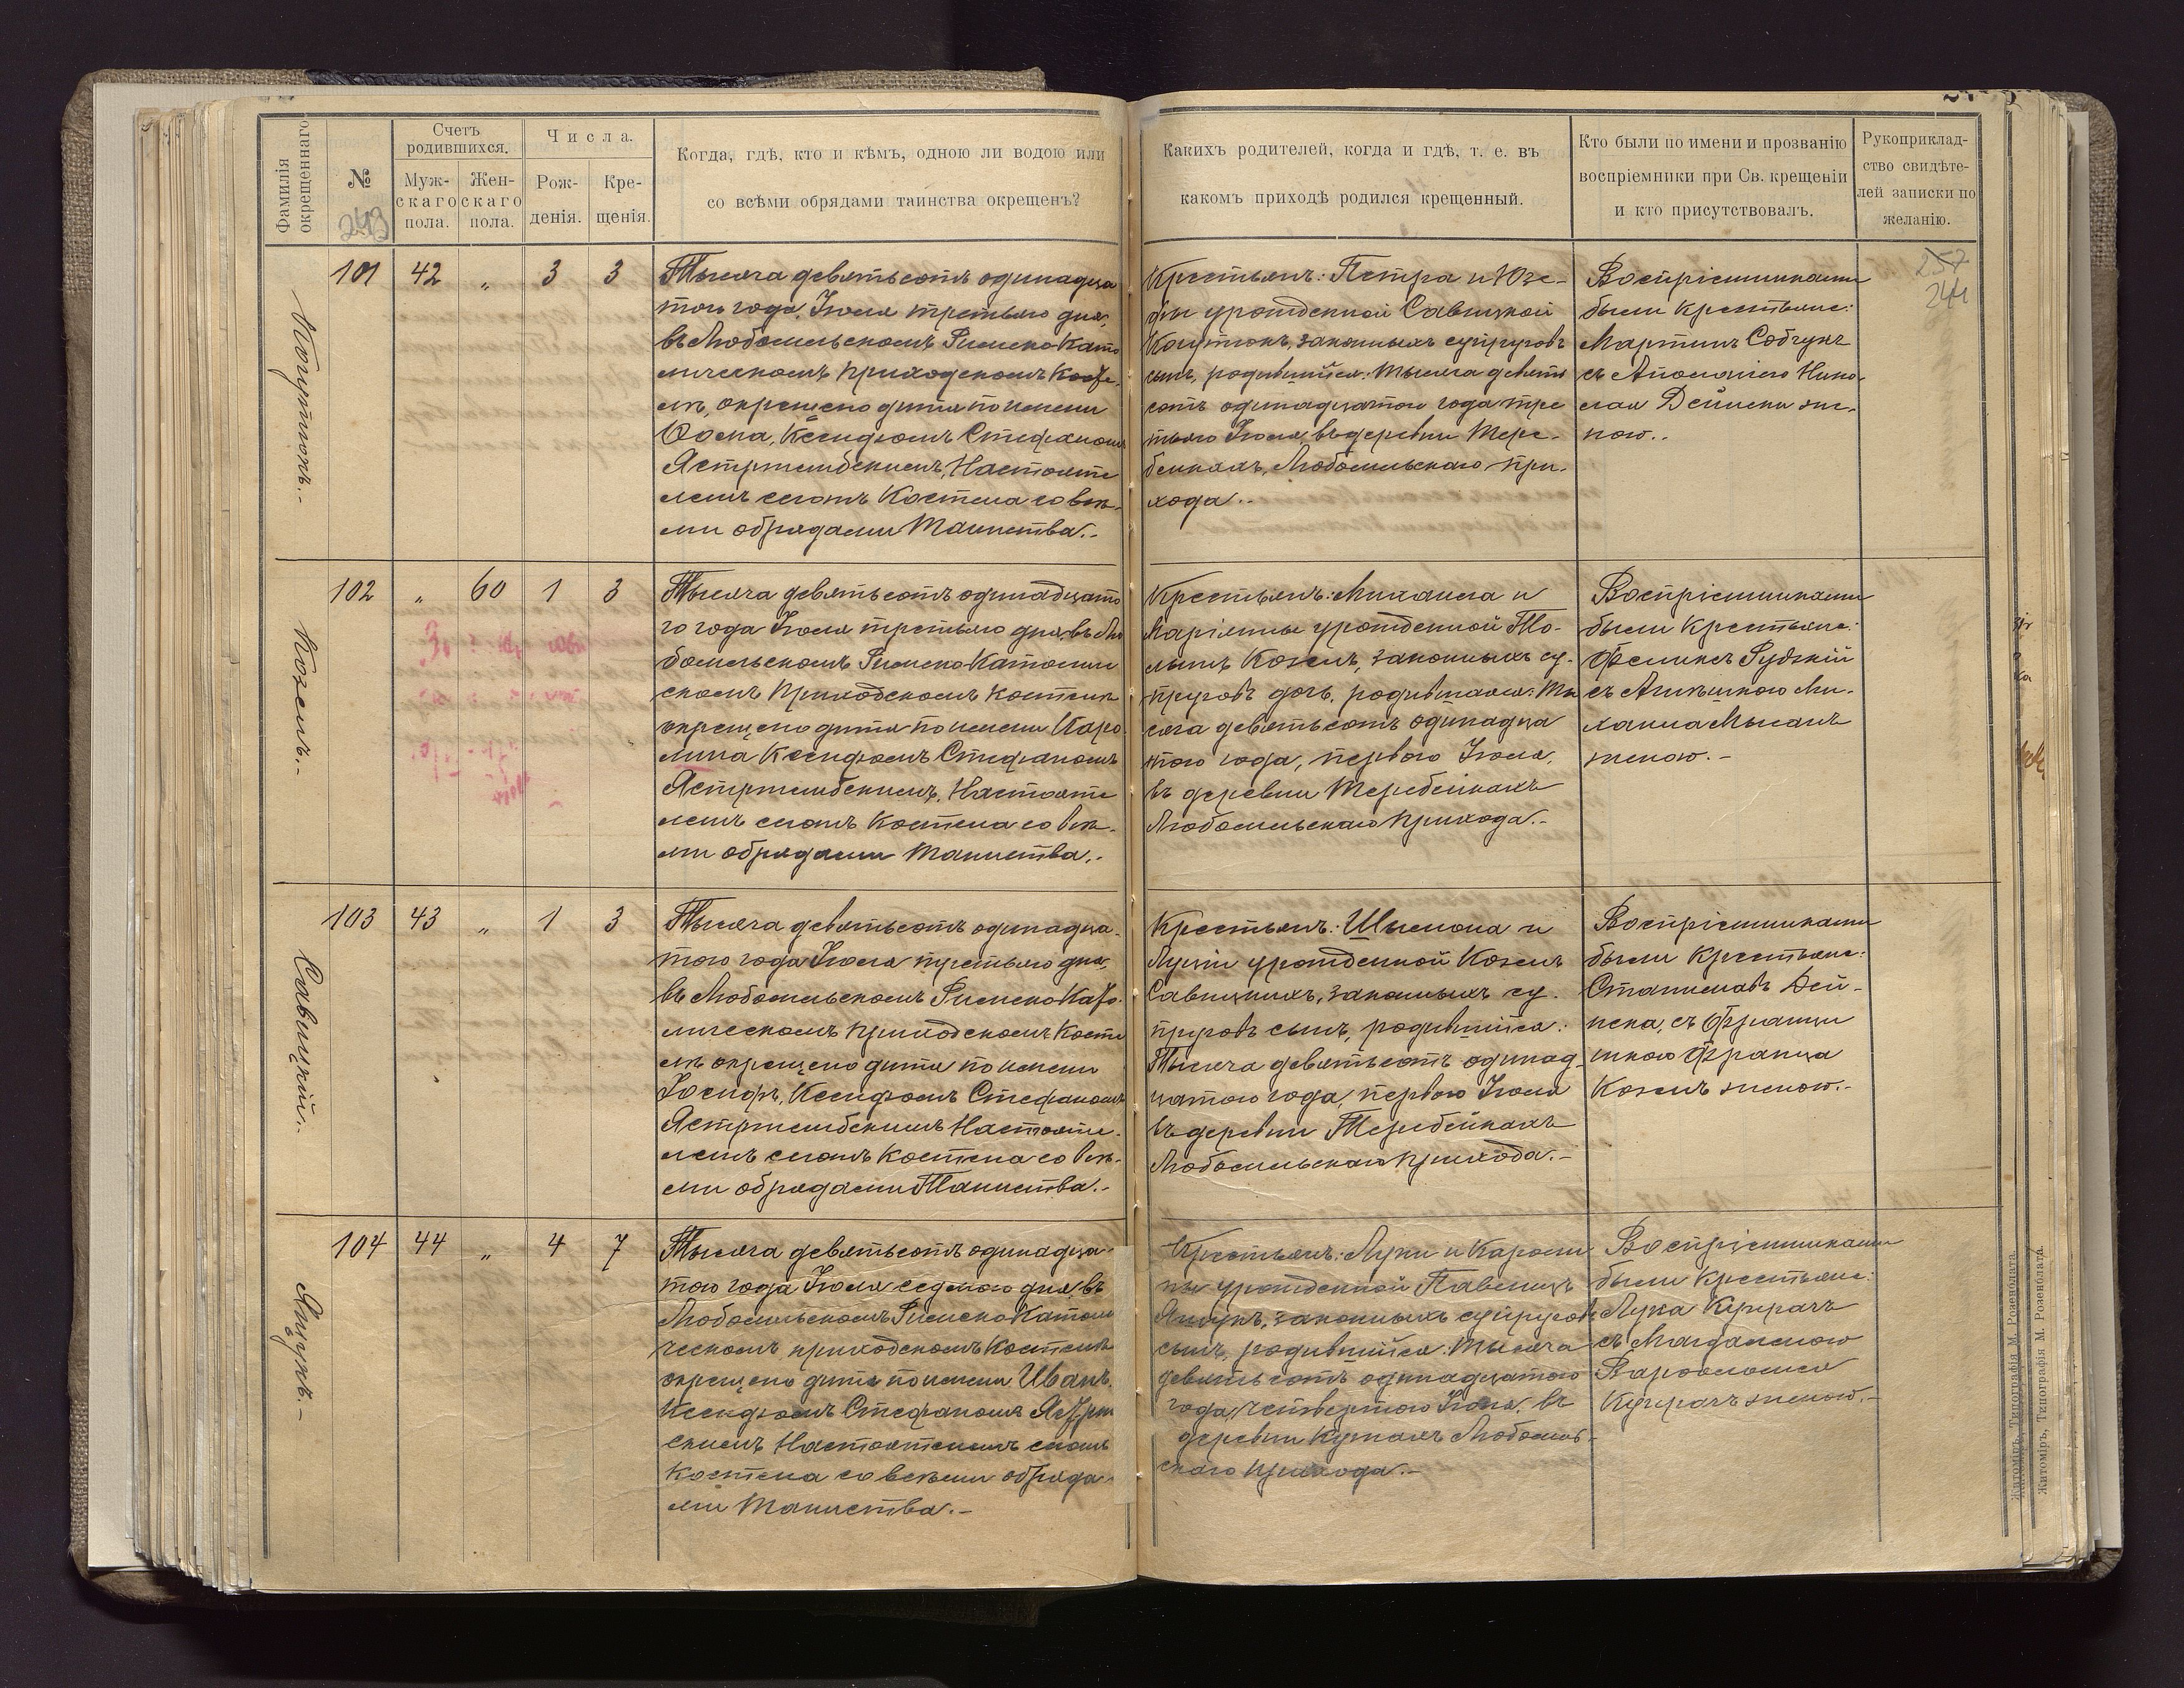 Фамилія окрещеннаго
№
243
Счетъ родившихся.
Муж-
скаго
пола.
Жен-
скаго
пола.
Числа.
Рож-
денія.
Кре-
щенія.
Когда, гдѣ, кто и кѣмъ, одною ли водою или
со всѣми обрядами таинства окрещенъ?
Какихъ родителей, когда и гдѣ, т. е. въ
какомъ приходѣ родился крещенный.
Кто были по имени и прозванію
воспріемники при Св. крещеніи
и кто присутствовалъ.
Рукоприклад-
ство свидѣте-
лей записки по
желанію.
257
244
101 42 „ 3 3
Тысяча девятьсотъ одинадца
того года, Іюля третьяго дня,
въ Любомльскомъ Римско Като
лическомъ приходскомъ Косте
лѣ, окрещено дитя по имени
Ѳома, Ксендзомъ Стефаномъ
Ястржембскимъ, Настояте
лемъ сегомъ Костела со всѣ-
ми обрядами Таинства.-
Крестьянъ: Петра и Юзе-
фы урожденной Савицкой
законныхъ супруговъ
сынъ, родившійся: тысяча девять
сотъ одинадцатого года тре
тьяго Іюля, въ деревни Тере-
бейкахъ, Любомльскаго при-
хода..
Воспріемниками
были Крестьяне:
Мартинъ Собчукъ
съ Аполоніею Нико-
лая Дейнеки же-
ною..
102 „ 60 1 3
Козелъ.-
Тысяча девятьсотъ одинадцато
го года Іюля третьяго дня, въ Лю
бомльскомъ Римско Католиче
скомъ Приходскомъ Костелѣ
окрещено дитя по имени Каро
лина Ксендзомъ Стефаномъ
Ястржембскимъ, Настояте
лемъ сегомъ Костела со всѣ-
ми обрядами Таинства.-
Крестьянъ: Михаила и
Маріянны урожденной То-
Козелъ, законныхъ су-
пруговъ дочь, родившаяся: Ты
сяча девятьсотъ одинадца
того года, перваго Іюля,
въ деревни Теребейкахъ
Любомльскаго прихода.-
Воспріемниками
были Крестьяне:
Феликсъ Рудзкій
съ Агнѣшкою Ми-
хаила
женою.-
103 43 „ 1 3
Савицкій..
Тысяча девятьсотъ одинадца-
того года Іюля третьяго дня,
въ Любомльскомъ Римско Като-
лическомъ Приходскомъ Косте
лѣ окрещено дитя по имени
Іосифъ, Ксендзомъ Стефаномъ
Ястржембскимъ Настояте-
лемъ сегомъ Костела со всѣ-
ми обрядами Таинства.-
Крестьянъ: Шымона и
Луціи урожденной Козелъ
Савицкихъ, законныхъ су-
пруговъ сынъ, родившійся:
Тысяча девятьсотъ одинад-
цатого года, перваго Іюля
въ деревни Теребейкахъ
Любомльскаго прихода.-
Воспріемниками
были Крестьяне:
Станиславъ Дей-
нека, съ Францѣ
шкою Франца
Козелъ женою.-
104 44 „ 4 7
Яцукъ.-
Тысяча девятьсотъ одинадца-
того года Іюля седмого дня, въ
Любомльскомъ Римско Католи
ческомъ приходскомъ Костелѣ
окрещено дитя по имени Иванъ,
Ксендзомъ Стефаномъ
скимъ Настоятелемъ сегомъ
Костела со всѣми обряда-
ми Таинства.-
Крестьянъ: Луки и Кароли
ны урожденной
Яцукъ, законныхъ супруговъ
сынъ, родившійся: Тысяча
девятьсотъ одинадцатого
года, четвертого Іюля, въ
деревни Любомль-
скаго прихода.-
Воспріемниками
были Крестьяне:
Лука
съ Магдаленою
женою.-
Житоміръ, Типографія М. Розенблата.
Житоміръ, Типографія М. Розенблата.